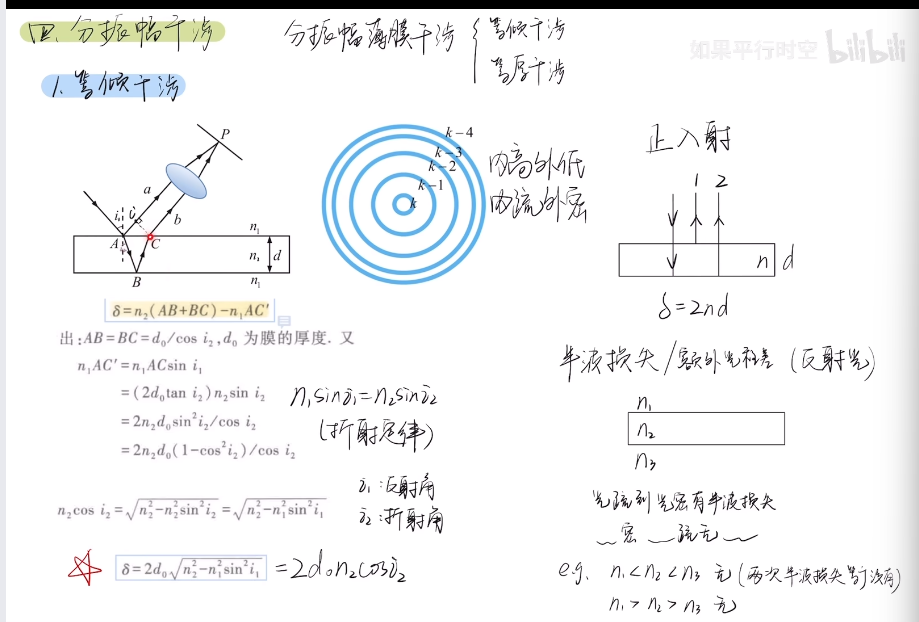 四、分振幅干涉
分振幅薄膜干涉 { 等倾干涉
等厚干涉
如果平行时空 bilibili
1. 等倾干涉
P
a
b
i₁ i₁
A C
B
n₁
n₂ d
n₁
k-4
k-3
k-2
k-1
k
内高外低
内疏外密
正入射
1 2
n d
δ=2nd
δ=n₂(AB+BC)-n₁AC′
出:AB=BC=d₀/cos i₂,d₀ 为膜的厚度. 又
n₁AC′=n₁ACsin i₁
=(2d₀tan i₂)n₂sin i₂
=2n₂d₀sin²i₂/cos i₂
=2n₂d₀(1-cos²i₂)/cos i₂
n₁sini₁=n₂sini₂
(折射定律)
i₁:反射角
i₂:折射角
n₂cos i₂=√(n₂²-n₂²sin²i₂)=√(n₂²-n₁²sin²i₁)
δ=2d₀√(n₂²-n₁²sin²i₁) =2d₀n₂cosi₂
半波损失/额外光程差 (反射光)
n₁
n₂
n₃
光疏到光密有半波损失
~密~疏无~
e.g. n₁<n₂<n₃ 无(两次半波损失等于没有)
n₁>n₂>n₃ 无